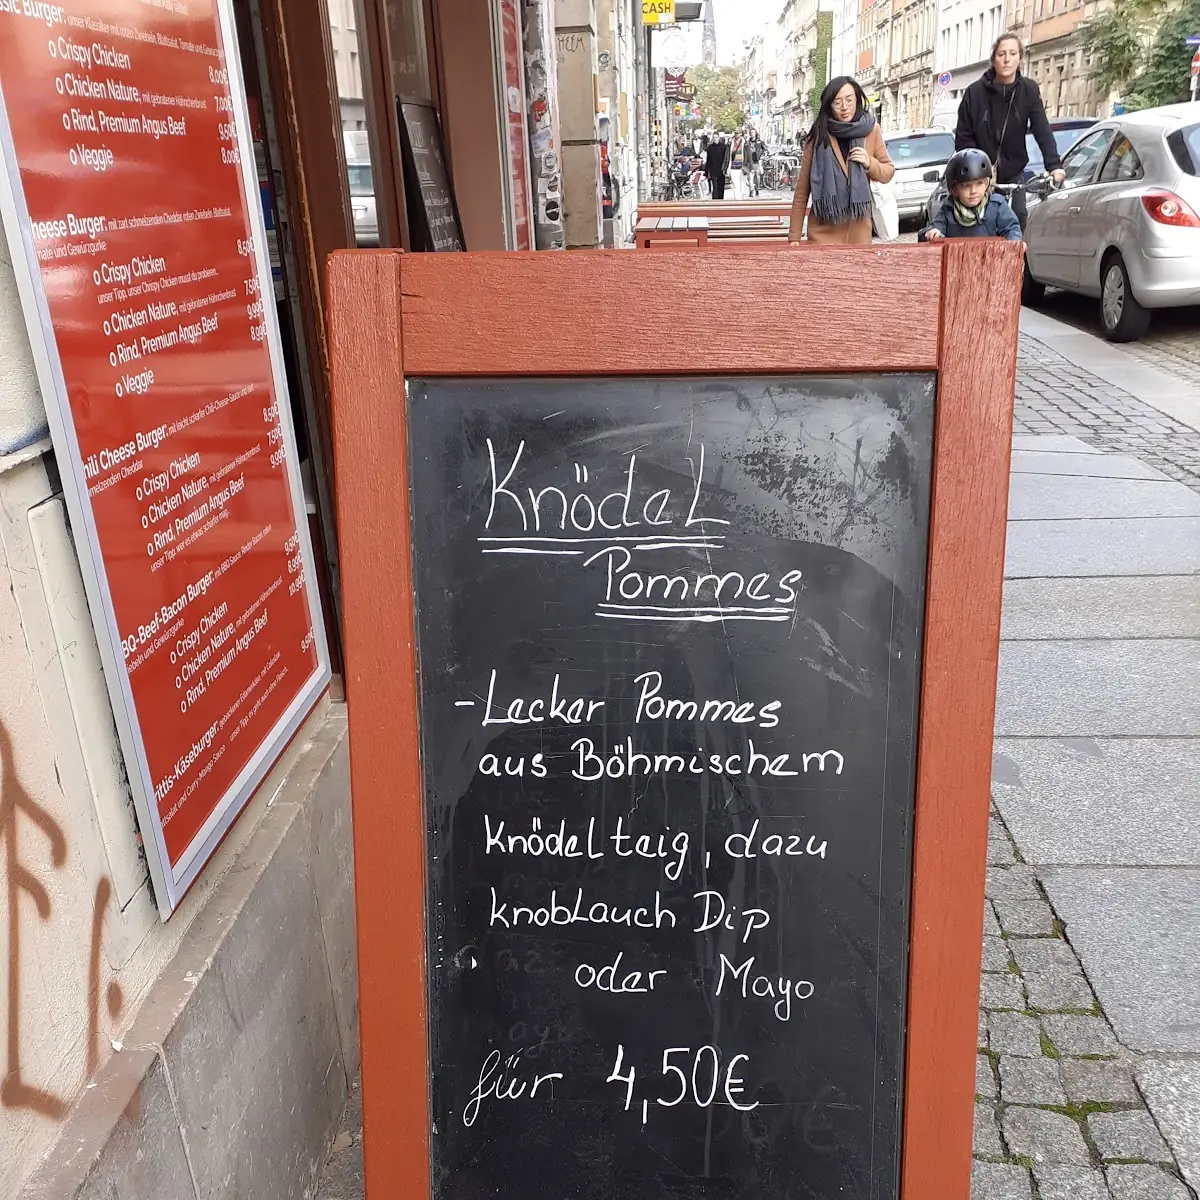 o Crispy Chicken
8,00€
o Chicken Nature, mit gebratener Hähnchenbrust
7,00€
o Rind, Premium Angus Beef
9,50€
o Veggie
8,00€
heese Burger: mit zart schmelzenden Cheddar, roten Zwiebeln, Blattsalat,
mate und Gewürzgurke
o Crispy Chicken
8,50€
unser Tipp, unser Chrispy Chicken musst du probieren...
o Chicken Nature, mit gebratener Hähnchenbrust
7,50€
o Rind, Premium Angus Beef
9,99€
o Veggie
8,99€
hili Cheese Burger: mit leicht scharfer Chili-Cheese-Sauce und
melzenden Cheddar
o Crispy Chicken
8,50€
o Chicken Nature, mit gebratener Hähnchenbrust
7,50€
o Rind, Premium Angus Beef
9,99€
unser Tipp, wer es etwas schärfer mag...
BQ-Beef-Bacon Burger: mit BBQ Sauce, Rinder Bacon, roten
iebeln und Gewürzgurke
o Crispy Chicken
9,50€
o Chicken Nature, mit gebratener Hähnchenbrust
8,99€
o Rind, Premium Angus Beef
10,99€
rittis-Käseburger: gebackener
9,50€
attsalat und Curry-Mango Sauce
CASH
Knödel
Pommes
-Lecker Pommes
aus Böhmischem
Knödelteig, dazu
Knoblauch Dip
oder Mayo
für 4,50€